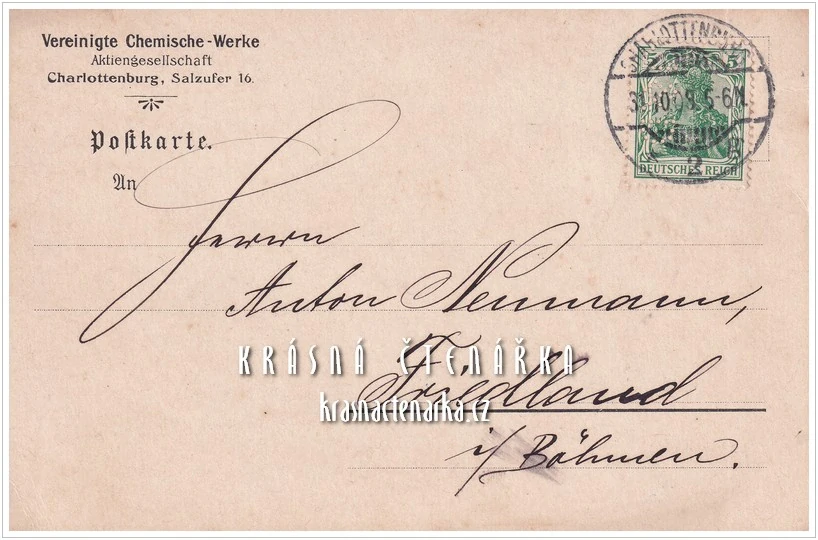 Vereinigte Chemische-Werke
Aktiengesellschaft
Charlottenburg, Salzufer 16.
Postkarte.
An
Herrn
Anton Neumann,
Friedland
i/Böhmen.
CHARLOTTENBURG
5 5
31.10.08. 5-6N.
2
B
DEUTSCHES REICH
KRÁSNÁ ČTENÁŘKA
krasnactenarka.cz